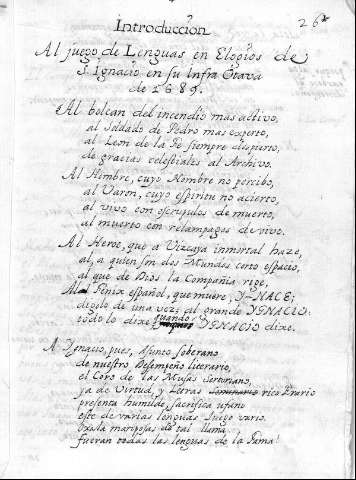 26
Introduccion
Al juego de Lenguas en Elogios de
S. Ignacio en su Infra Otava
de 1689.
Al bolcan del incendio mas activo,
al Soldado de Pedro mas experto,
al Leon de la Fe siempre dispierto,
de gracias celestiales al Archivo.
Al Himbre, cuyo Nombre no percibo,
al Varon, cuyo espiritu no acierto,
al vivo con escrupulos de muerto,
al muerto con relampagos de vivo.
Al Heroe, que a Vizcaya inmortal haze,
al, a quien son dos Mundos corto espacio,
al que de Dios la Compañia rige,
Al Fenix español, que muere, Y-NACE;
digolo de una vez; al grande YGNACIO:
todo lo dixe quando YGNACIO dixe.
A Ignacio, pues, Asunto soberano
de nuestro Desempeño literario,
el Coro de las Musas
ya de Virtud, y Letras rico Erario
presenta humilde, sacrifica ufano
este de varias lenguas Juego vario.
Oxala mariposas de tal llama
fueran todas las lenguas de la Fama!